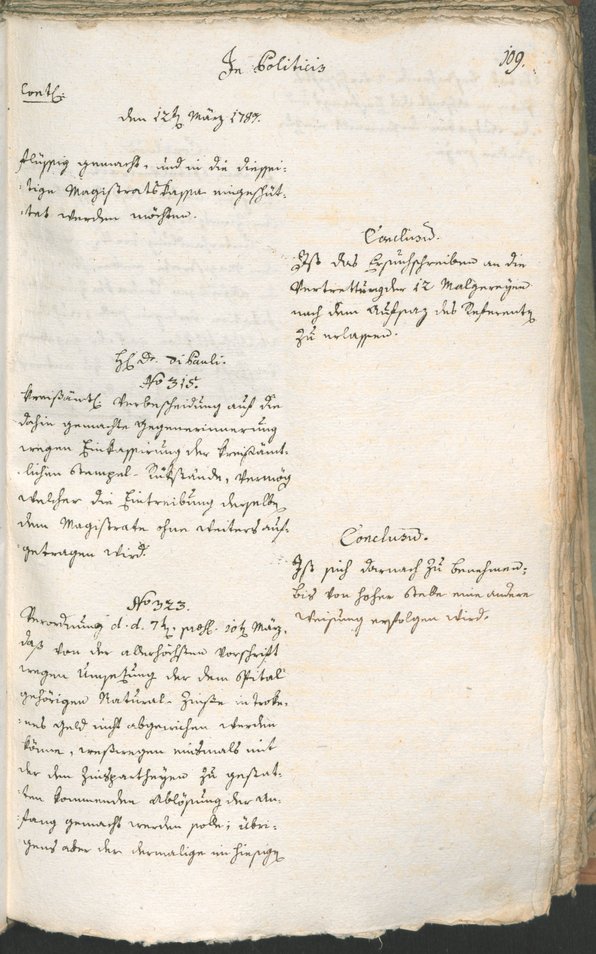 In Politicis
109.
Contl:
den 12t März 1787.
flüssig gemacht, und in die dießei-
:tige Magistratskassa eingeschüt-
:tet werden möchten.
Conclusũ.
Ist das Ersuchschreiben an die
Vertrettung der 12 Malgereyen
nach dem Aufsaz des Referenten
zu erlassen.
H: Dr. Di Pauli.
No 315.
Kreißämtl: Verbescheidung auf die
dahin gemachte Gegenerinnerung
wegen Einkassirung der kreißämt-
:lichen Stempel-Rükstände, vermög
welcher die Eintreibung derselben
dem Magistrate ohne weiters auf-
:getragen wird.
Conclusũ.
Ist sich darnach zu benehmen;
bis von hoher Stelle eine andere
Weisung erfolgen wird.
No 323.
Verordnung d. d. 7t, praes. 10t März,
daß von der allerhöchsten Vorschrift
wegen Umsetzung der dem Spital
gehörigen Natural-Zinse in troke-
:nes Geld nicht abgewichen werden
könne, weßwegen einsmals mit
der den Zinspartheyen zu gestat-
:ten kommenden Ablösung der An-
:fang gemacht werden solle; übri-
:gens aber der dermalige im hiesigen